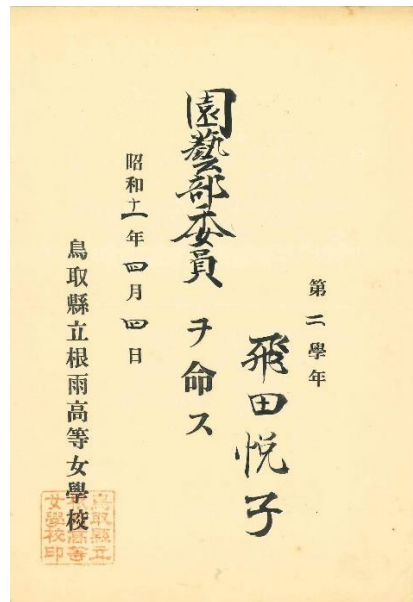 第二學年
飛田悦子
園藝部委員ヲ命ス
昭和十一年四月四日
鳥取縣立根雨高等女學校
鳥取縣立
高等
女學校印